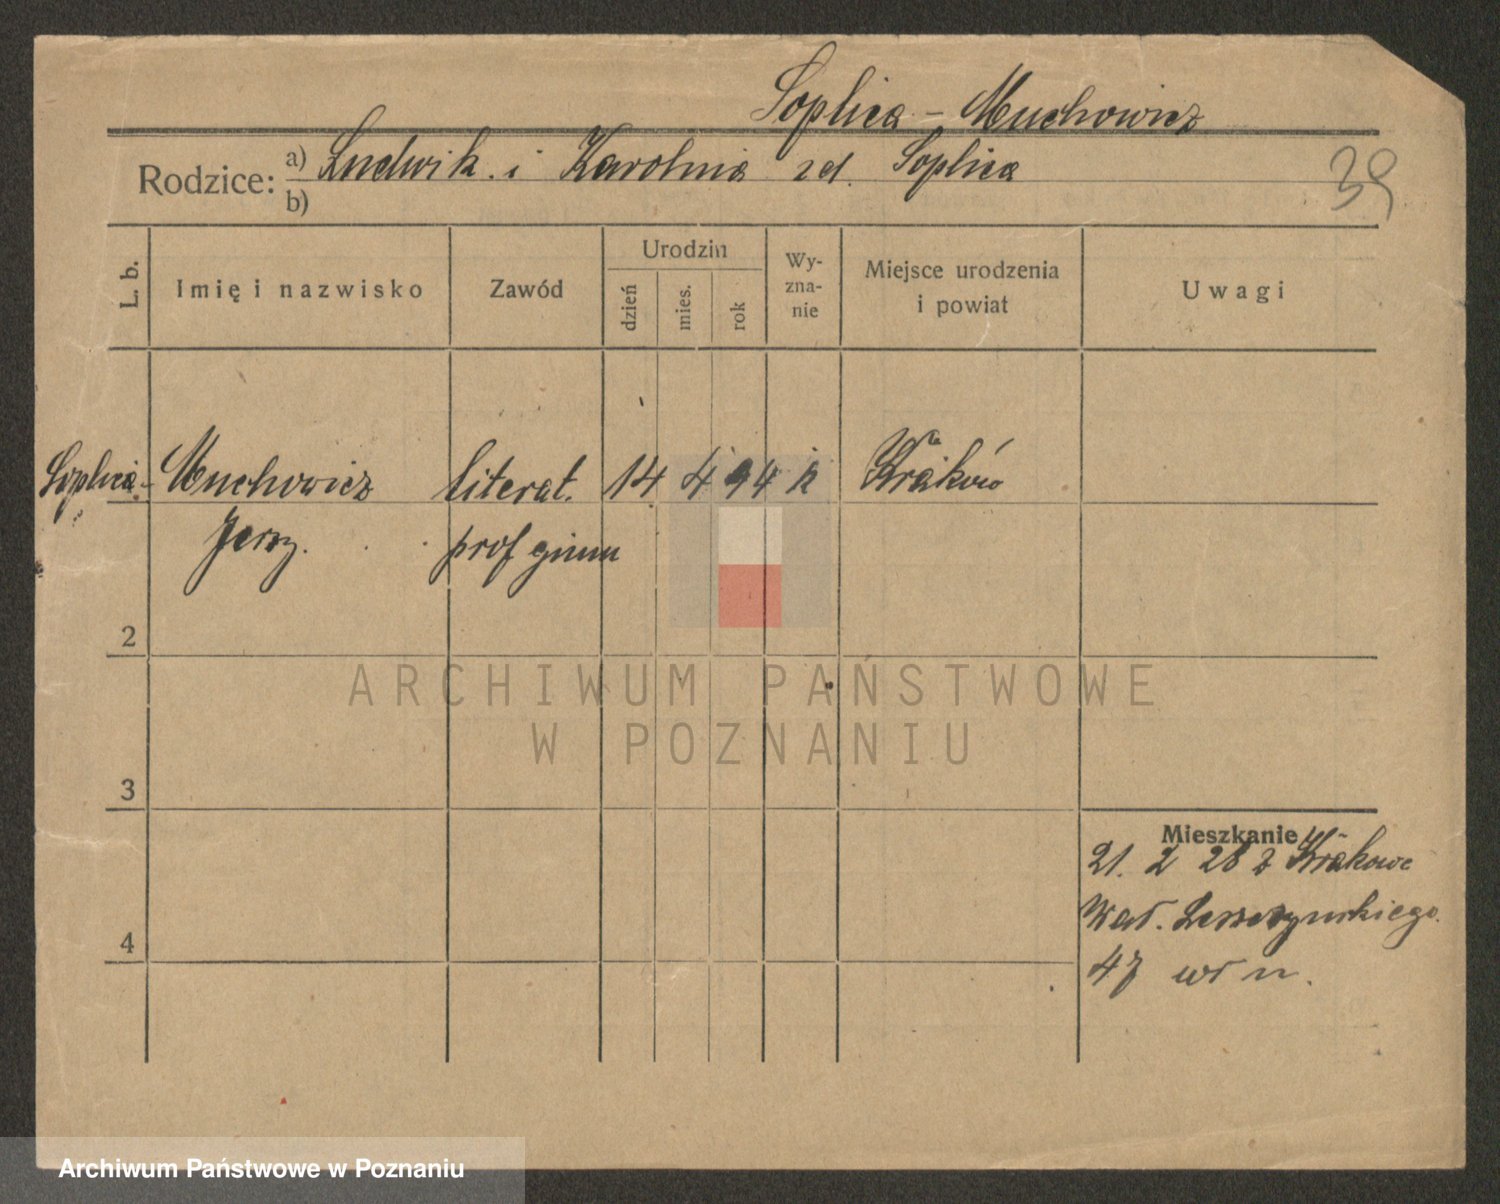 Soplica - Muchowicz
Rodzice: a) Ludwik. i Karolina zd. Soplica
39
b)
L. b.
Imię i nazwisko
Zawód
Urodzin
dzień
mies.
rok
Wy-
zna-
nie
Miejsce urodzenia
i powiat
Uwagi
Soplica - Muchowicz literat. 14 4 94 k Kraków
Jerzy. prof gimn
2
3
4
Mieszkanie
21. 2 28 z Krakowa
Wał. Leszczyńskiego.
47
ARCHIWUM PAŃSTWOWE
W POZNANIU
Archiwum Państwowe w Poznaniu